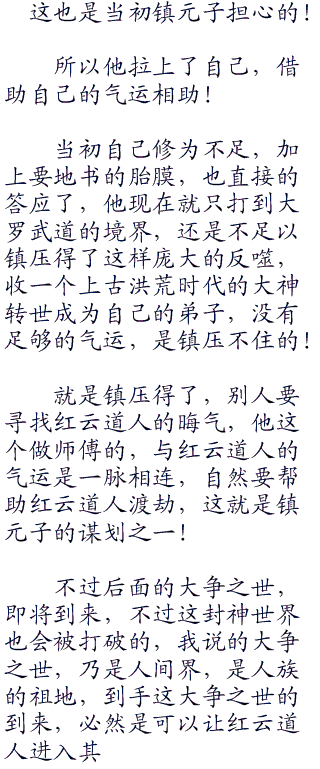 这也是当初镇元子担心的！
所以他拉上了自己，借
助自己的气运相助！
当初自己修为不足，加
上要地书的胎膜，也直接的
答应了，他现在就只打到大
罗武道的境界，还是不足以
镇压得了这样庞大的反噬，
收一个上古洪荒时代的大神
转世成为自己的弟子，没有
足够的气运，是镇压不住的！
就是镇压得了，别人要
寻找红云道人的晦气，他这
个做师傅的，与红云道人的
气运是一脉相连，自然要帮
助红云道人渡劫，这就是镇
元子的谋划之一！
不过后面的大争之世，
即将到来，不过这封神世界
也会被打破的，我说的大争
之世，乃是人间界，是人族
的祖地，到手这大争之世的
到来，必然是可以让红云道
人进入其